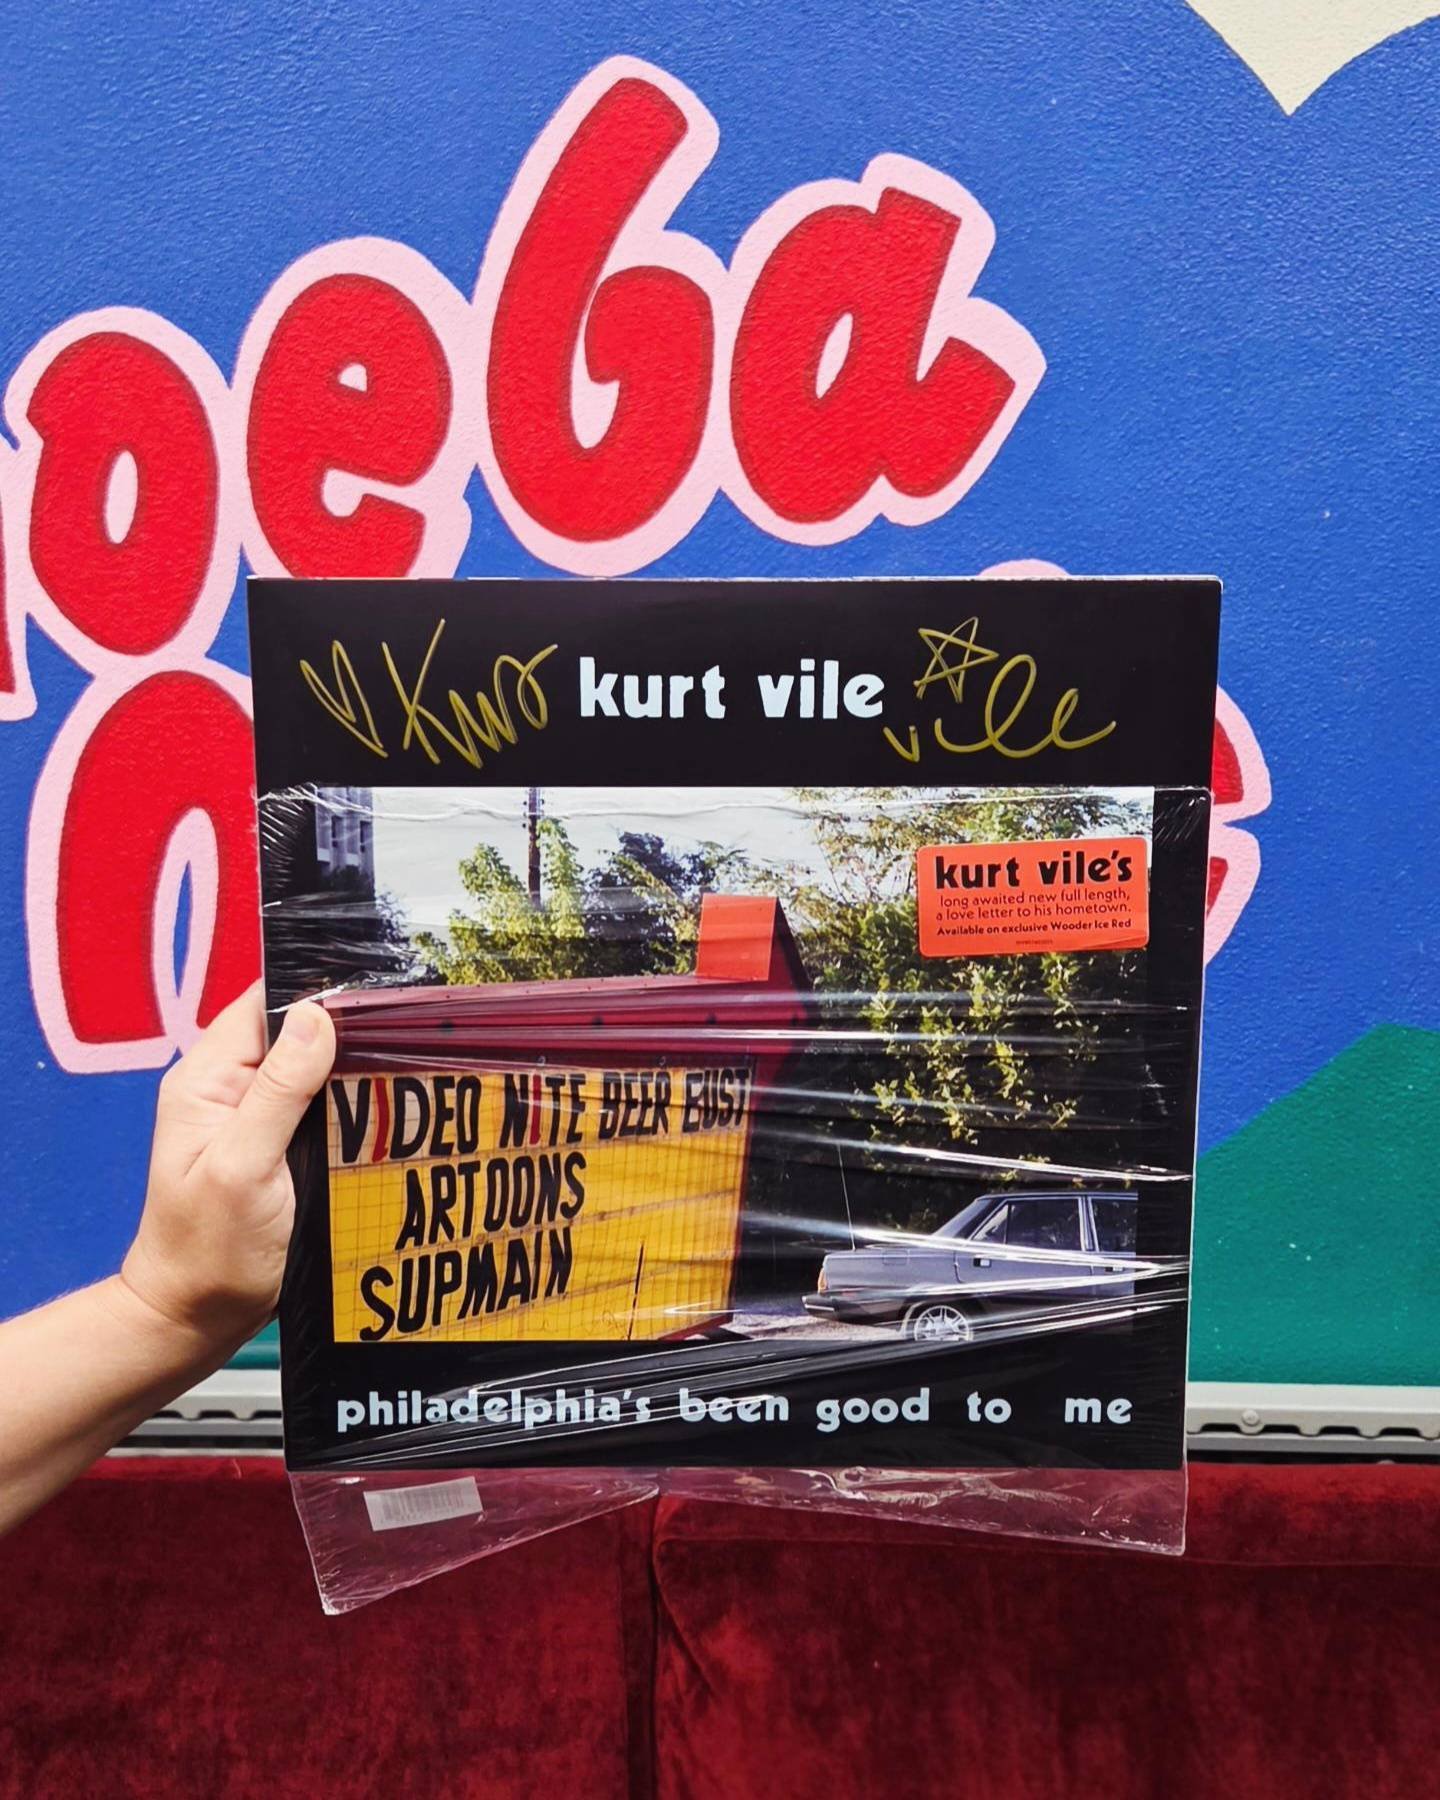 oeba
Kurt kurt vile vile
kurt vile's
long awaited new full length,
a love letter to his hometown.
Available on exclusive Wooder Ice Red
VIDEO NITE BEER BUST
ARTOONS
SUPMAIN
philadelphia's been good to me